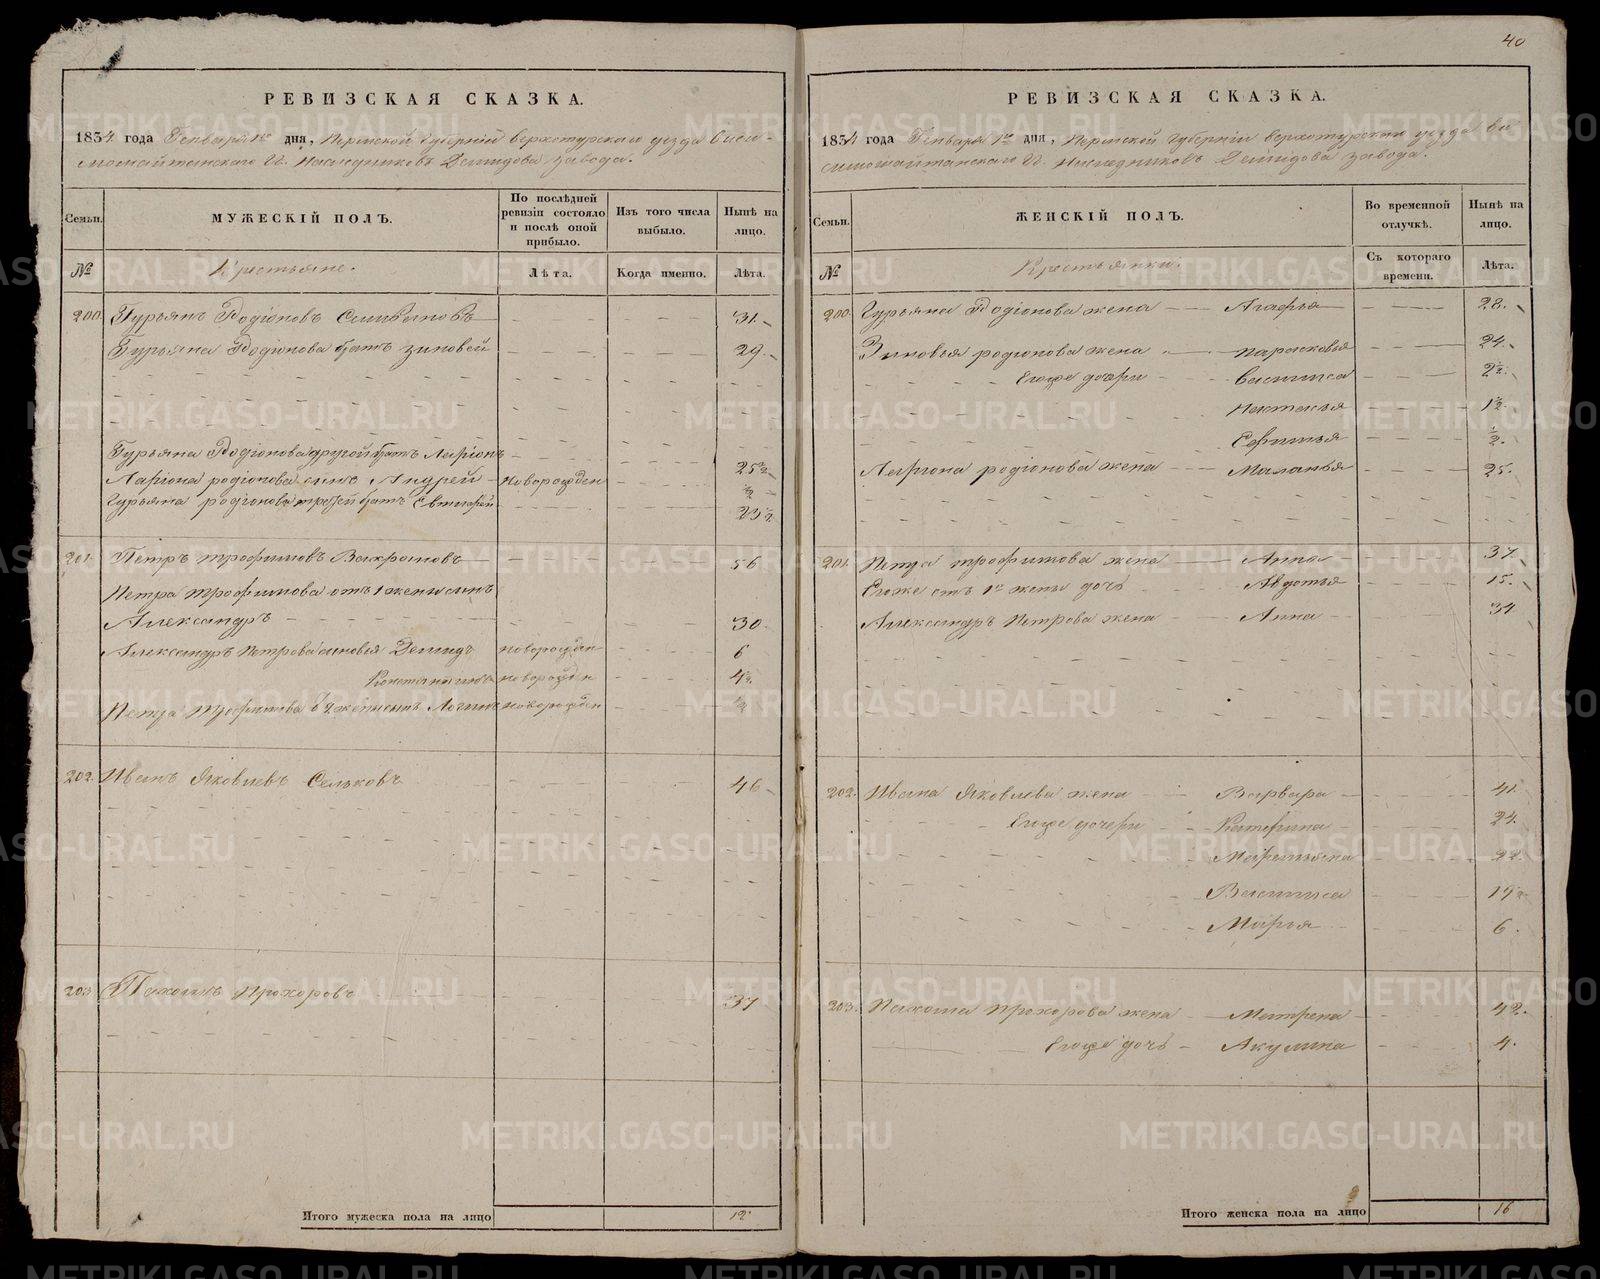 40
РЕВИЗСКАЯ СКАЗКА.
1834 года Генваря 1го дня, Пермской Губерніи верхотурскаго уезда виси-
мошайтанскаго Г. Наследниковъ Демидова завода.
Семьи.
МУЖЕСКІЙ ПОЛЪ.
По послѣдней ревизіи состояло и послѣ оной прибыло.
Изъ того числа выбыло.
Нынѣ на лицо.
№
Крестьяне.
Лѣта.
Когда именно.
Лѣта.
200. Гурьянъ Родіоновъ 31.
Гурьяна Родіонова братъ Зиновей 29.
Гурьяна Родіонова другой братъ Ларіонъ 25½
Ларіона родіонова сынъ Андрей новорожден ½
Гурьяна родіонова третей братъ 23½
201. Петръ трофимовъ 56
Петра трофимова отъ 1 жены сынъ
Александръ 30.
Александръ Петрова сыновья Демидъ новорожден 6
Константинъ новорожден 4½
Петра трофимова новорожден ½
202. Иванъ Яковлевъ Сельковъ 46
203. Пахомъ Прохоровъ 37
Итого мужеска пола на лицо 12
РЕВИЗСКАЯ СКАЗКА.
1834 года Генваря 1го дня, Пермской Губерніи верхотурскаго уезда ви
симошайтанскаго Г. Наследниковъ Демидова завода.
Семьи.
ЖЕНСКІЙ ПОЛЪ.
Во временной отлучкѣ.
Нынѣ на лицо.
№
Крестьянки.
Съ котораго времени.
Лѣта.
200. Гурьяна Родіонова жена Агафья 28.
Зиновья родіонова жена парасковья 24.
Егоже дочери василиса 2½.
1½.
½.
Ларіона родіонова жена Маланья 25.
201. Петра трофимова жена Анна 37.
Егоже отъ 1й жены дочь Авдотья 15.
Александръ Петрова жена Анна 31
202. Ивана Яковлева жена Варвара 41.
Егоже дочери Катерина 24.
22.
Василиса 19½
Марья 6.
203. Пахома Прохорова жена Матрена 42.
Егоже дочь Акулина 4.
Итого женска пола на лицо 16
METRIKI.GASO-URAL.RU